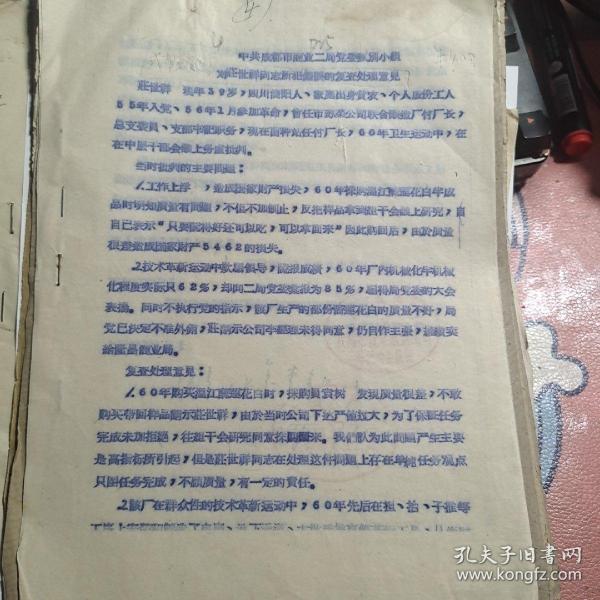 中共成都市商业二局党委甄别小组
对莊世群同志所犯错误的复查处理意见
莊世群 现年39岁,四川简阳人、家庭出身贫农、个人成份工人
55年入党、56年1月参加革命,曾任市蔬菜公司联合酿造厂付厂长,
总支委员、支部书记职务,现在苗种站任付厂长,60年卫生运动中,在
在中层干部会议上务虚批判。
当时批判的主要问题:
1.工作上浮 ,造成国家财产损失,60年採购温江甕莲花白半成
品时明知质量有问题,不但不加制止,反把样品拿到班干会议上研究,自
自已表示“只要能得好还可以吃,可以拿回来”因此购回后,由於质量
很差造成国家财产5462的损失。
2.技术革新运动中欺骗领导,谎报成绩,60年厂内机械化半机械
化程度实际只62%,却向二局党委谎报为85%,骗得局党委的大会
表扬。同时不执行党的指示,該厂生产的部份甕莲花白的质量不好,局
党已决定不准外銷,莊請示公司李經理未得同意,仍自作主張,
給隆昌商业局。
复查处理意见:
1.60年购买温江甕莲花白时,採购員賞树 发現质量很差,不敢
购买带回样品請示莊世群,由於当时公司下达产值过大,为了保証任务
完成未加拒絕,在班干会研究同意採購回来。我們认为此問題产生主要
是高指标所引起,但是莊世群同志在处理这付問題上存在单純任务覌点
只图任务完成,不顾质量,有一定的責任。
2.該厂在群众性的技术革新运动中,60年先后在担、抬、子推每
孔夫子旧書网
www.kongfz.com